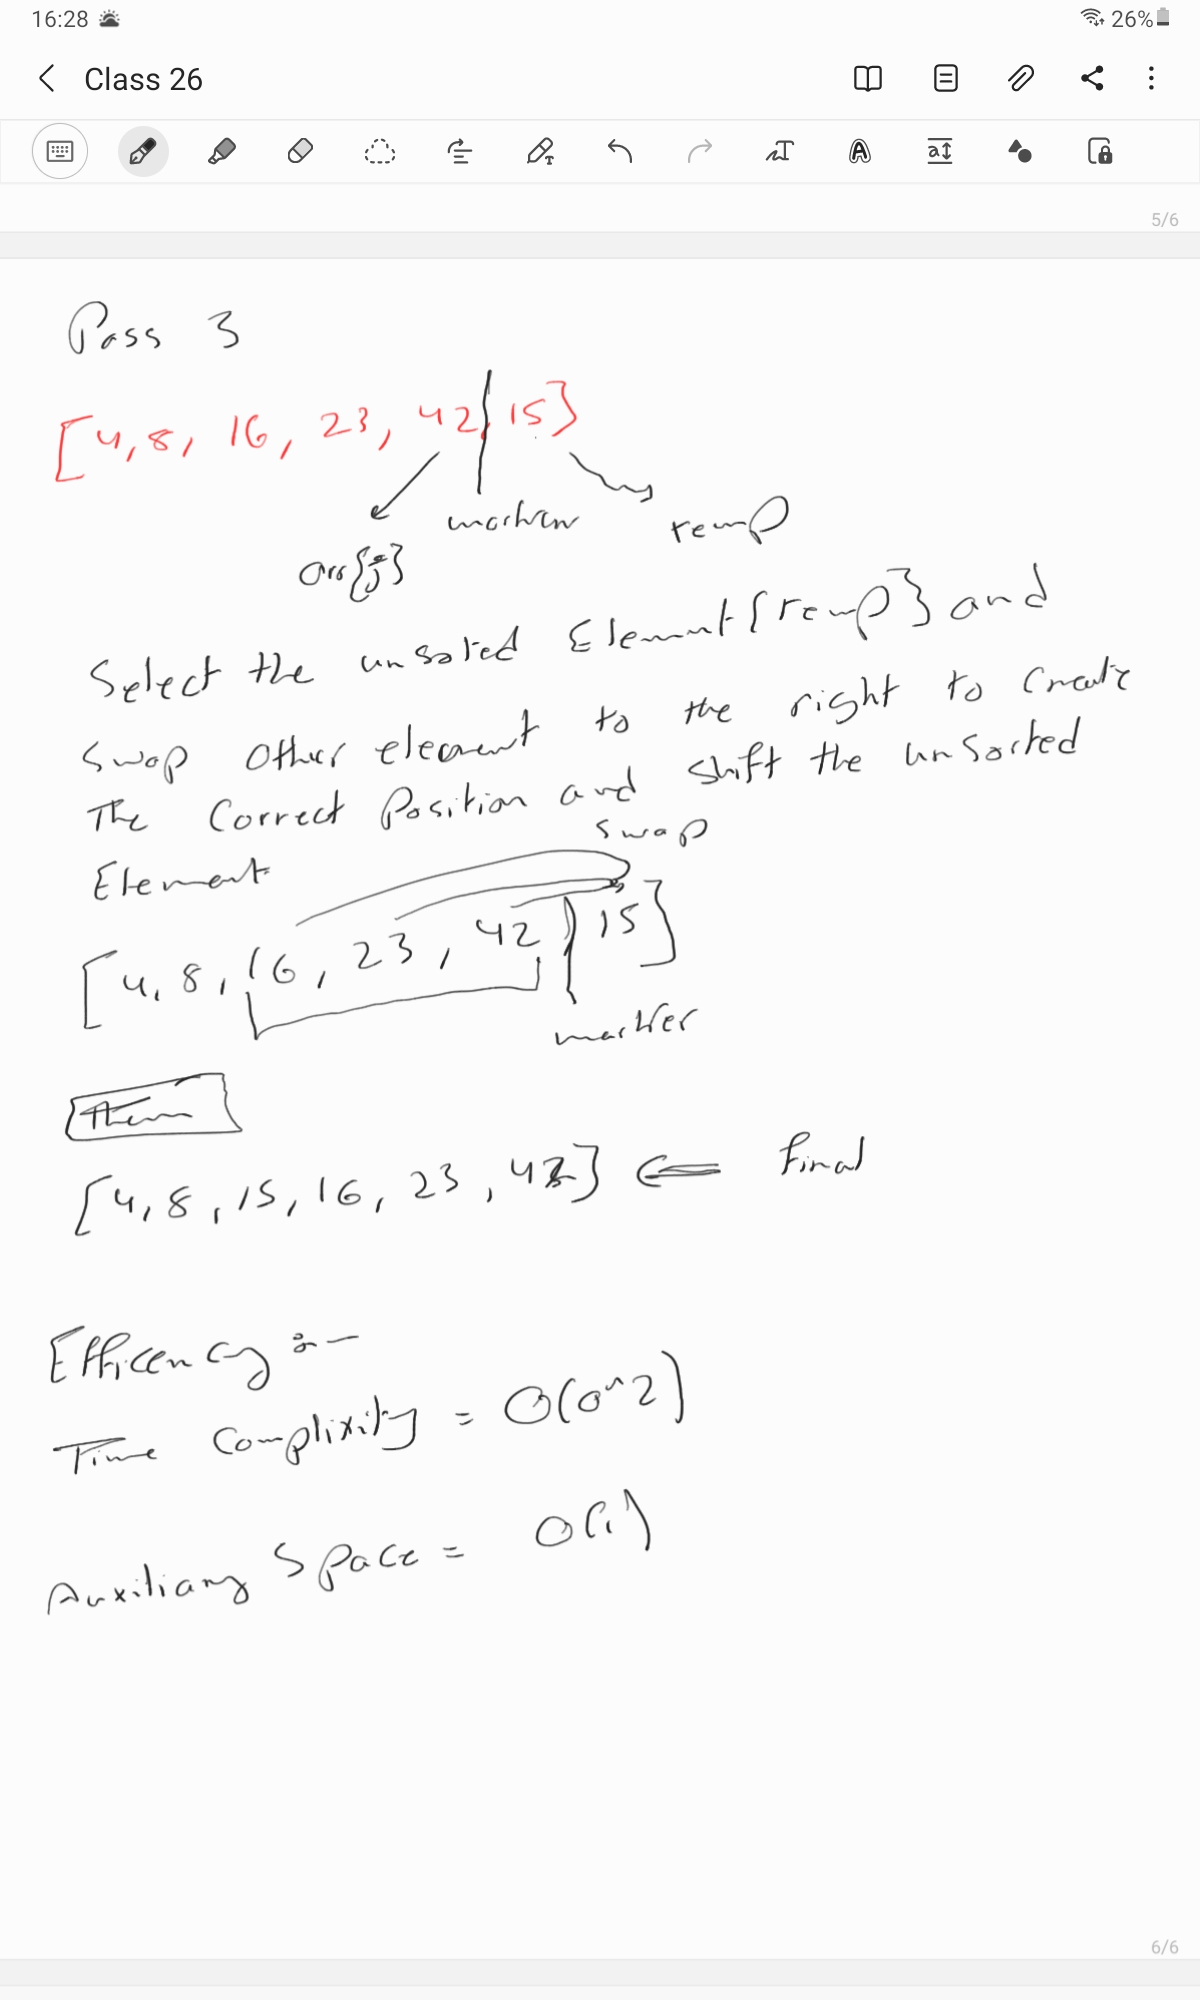 16:28 26%
Class 26
5/6
Pass 3
[4, 8, 16, 23, 42, 15]
arr[j] marker temp
Select the unsoted Element [temp] and
Swap Other element to the right to Create
The Correct Position and shift the unsorted
Element swap
[4, 8, 16, 23, 42, 15]
marker
Then
[4, 8, 15, 16, 23, 42] ⇐ final
Efficency :-
Time Complixity = O(o^2)
Auxiliary Space = O(1)
6/6